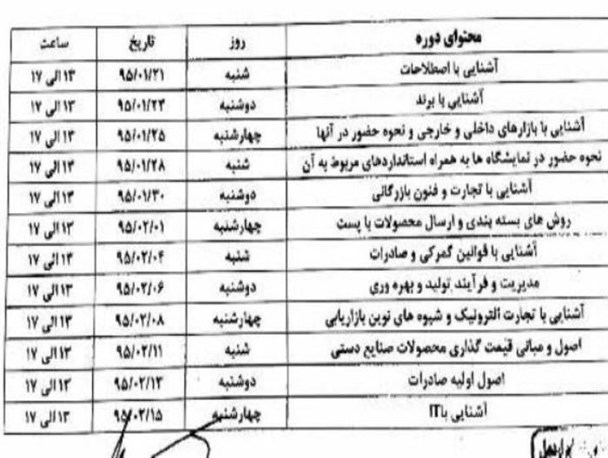 محتوای دوره روز تاریخ ساعت
آشنایی با اصطلاحات شنبه ۹۵/۰۱/۲۱ ۱۳ الی ۱۷
آشنایی با برند دوشنبه ۹۵/۰۱/۲۳ ۱۳ الی ۱۷
آشنایی با بازارهای داخلی و خارجی و نحوه حضور در آنها چهارشنبه ۹۵/۰۱/۲۵ ۱۳ الی ۱۷
نحوه حضور در نمایشگاه ها به همراه استانداردهای مربوط به آن شنبه ۹۵/۰۱/۲۸ ۱۳ الی ۱۷
آشنایی با تجارت و فنون بازرگانی دوشنبه ۹۵/۰۱/۳۰ ۱۳ الی ۱۷
روش های بسته بندی و ارسال محصولات با پست چهارشنبه ۹۵/۰۲/۰۱ ۱۳ الی ۱۷
آشنایی با قوانین گمرکی و صادرات شنبه ۹۵/۰۲/۰۴ ۱۳ الی ۱۷
مدیریت و فرآیند تولید و بهره وری دوشنبه ۹۵/۰۲/۰۶ ۱۳ الی ۱۷
آشنایی با تجارت الترونیک و شیوه های نوین بازاریابی چهارشنبه ۹۵/۰۲/۰۸ ۱۳ الی ۱۷
اصول و مبانی قیمت گذاری محصولات صنایع دستی شنبه ۹۵/۰۲/۱۱ ۱۳ الی ۱۷
اصول اولیه صادرات دوشنبه ۹۵/۰۲/۱۳ ۱۳ الی ۱۷
آشنایی با IT چهارشنبه ۹۵/۰۲/۱۵ ۱۳ الی ۱۷